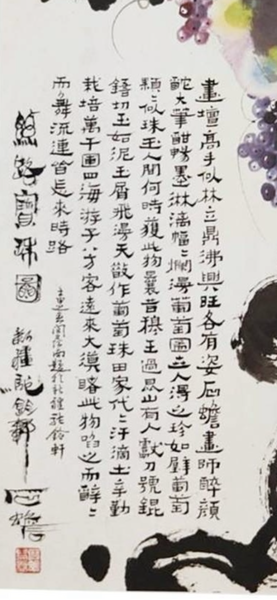 畫壇高手似林立鼎沸興旺各有姿石蟾畫師醉顏
酡大筆酣暢墨淋漓幅幅爛漫葡萄圖世人得之珍如璧葡萄
顆顆似珠玉人間何時獲此物曩昔穆王過崑山有人獻刀號錕
鋙切玉如泥玉屑飛漫天散作葡萄珠田家代代汗滴土辛勤
栽培萬千圃四海游子八方客遠來大漠賂此物啗之而醉醉
而舞流連皆忘來時路
絲路寶珠圖
新疆駝鈴軒 石蟾